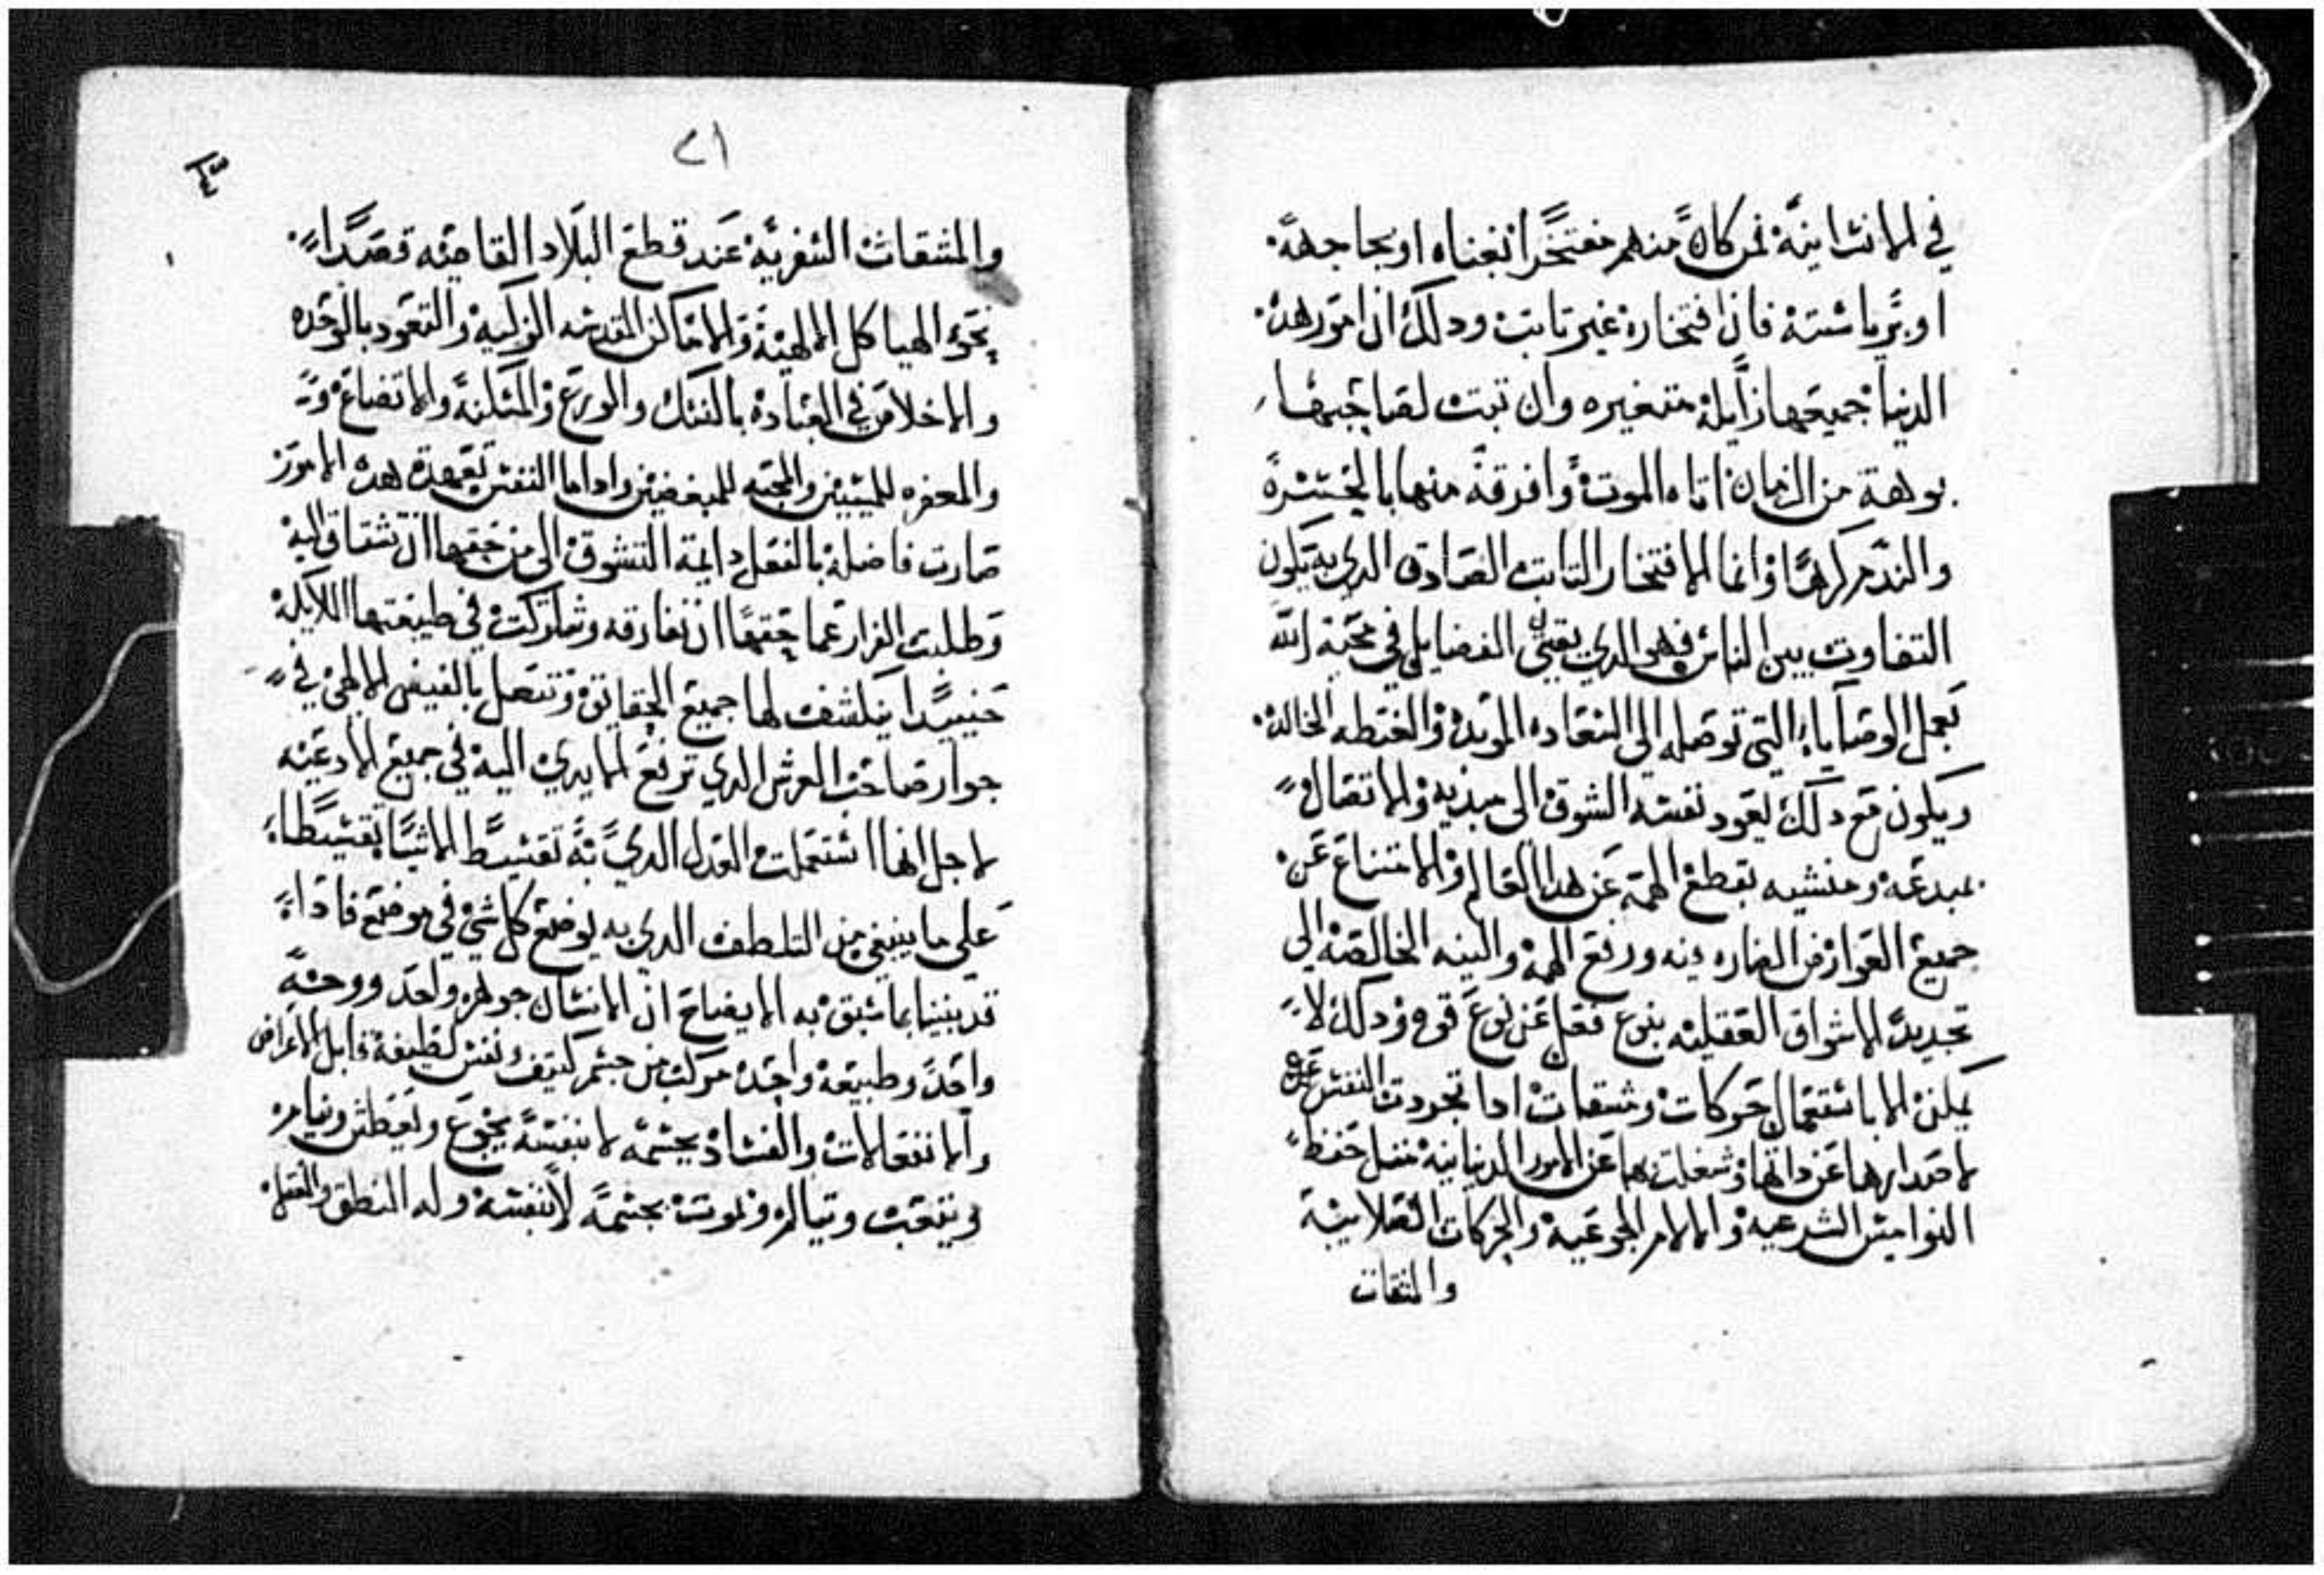 في الانسانية فمن كان منهم مفتخرا بغناه او بجاهه
او برياسته فان افتخاره غير تابت ودلك ان امور هده
الدنيا جميعها زايلة متغيره وان تبتت لصاحبها
برهة من الزمان اتاه الموت وافرقه منها بالحسرة
والندم كرها وانما الافتخار التابت الصادق الدي به يكون
التفاوت بين الناس فهو الدي يقتني الفضايل في محبة الله
بعمل الوصايا التي توصله الى السعاده الموبده والغبطه الخالده
ويكون مع دلك يعود نفسه الشوق الى مبديه والاتصال
بمبدعه ومنشيه بقطع الهمة عن هدا العالم والامتناع عن
جميع العوارض الضاره دينه ورفع الهمة والنيه الخالصة الى
تجديد الاشواق العقليه بنوع فعل عن نوع قوه ودلك لا
يمكن الا باستعمال حركات ومشقات ادا تجردت النفس
لاصدارها عن داتها وشغلت بها عن الامور الدنيانية متل حفظ
النواميس الشرعيه والالام الجوعيه والحركات الصلاييه
والمشقات
٢١
والمشقات السفرية عند قطع البلاد القاصيه قصدا
نحو الهياكل الالهية والاماكن المقدسه الزكيه والتعود بالوحده
والاخلاص في العبادة بالنسك والورع والمسكنة والاتضاع
والمغفره للمسيين والمحبه للمبغضين وادا ما النفس تعمدت هده الامور
صارت فاضلة بالفعل دايمة التشوق الى من حقها ان تشتاق اليه
وطلبت الفرار عما حقها ان تفارقه وشاركت في طبيعتها الملايكة
حينيدا ينكشف لها جميع الحقايق وتتصل بالفيض الالهي في
جوار صاحب العرش الدي ترفع الايدي اليه في جميع الادعيه
لاجل انها استعملت العدل الدي به تقسط الاشيا تقسيطا
على ما ينبغي من التلطف الدي به يوضع كل شي في موضعه فادا
قد بينا بما سبق به الايضاح ان الانسان جوهر واحد ووجه
واحد وطبيعة واحده مركب من جسم كتيف ونفس لطيفة قابل الاعراض
والانفعالات والفساد بجسمه لا بنفسه يجوع ويعطش وينام
ويتعب ويتالم ويموت بجسمه لا بنفسه وله النطق والعقل